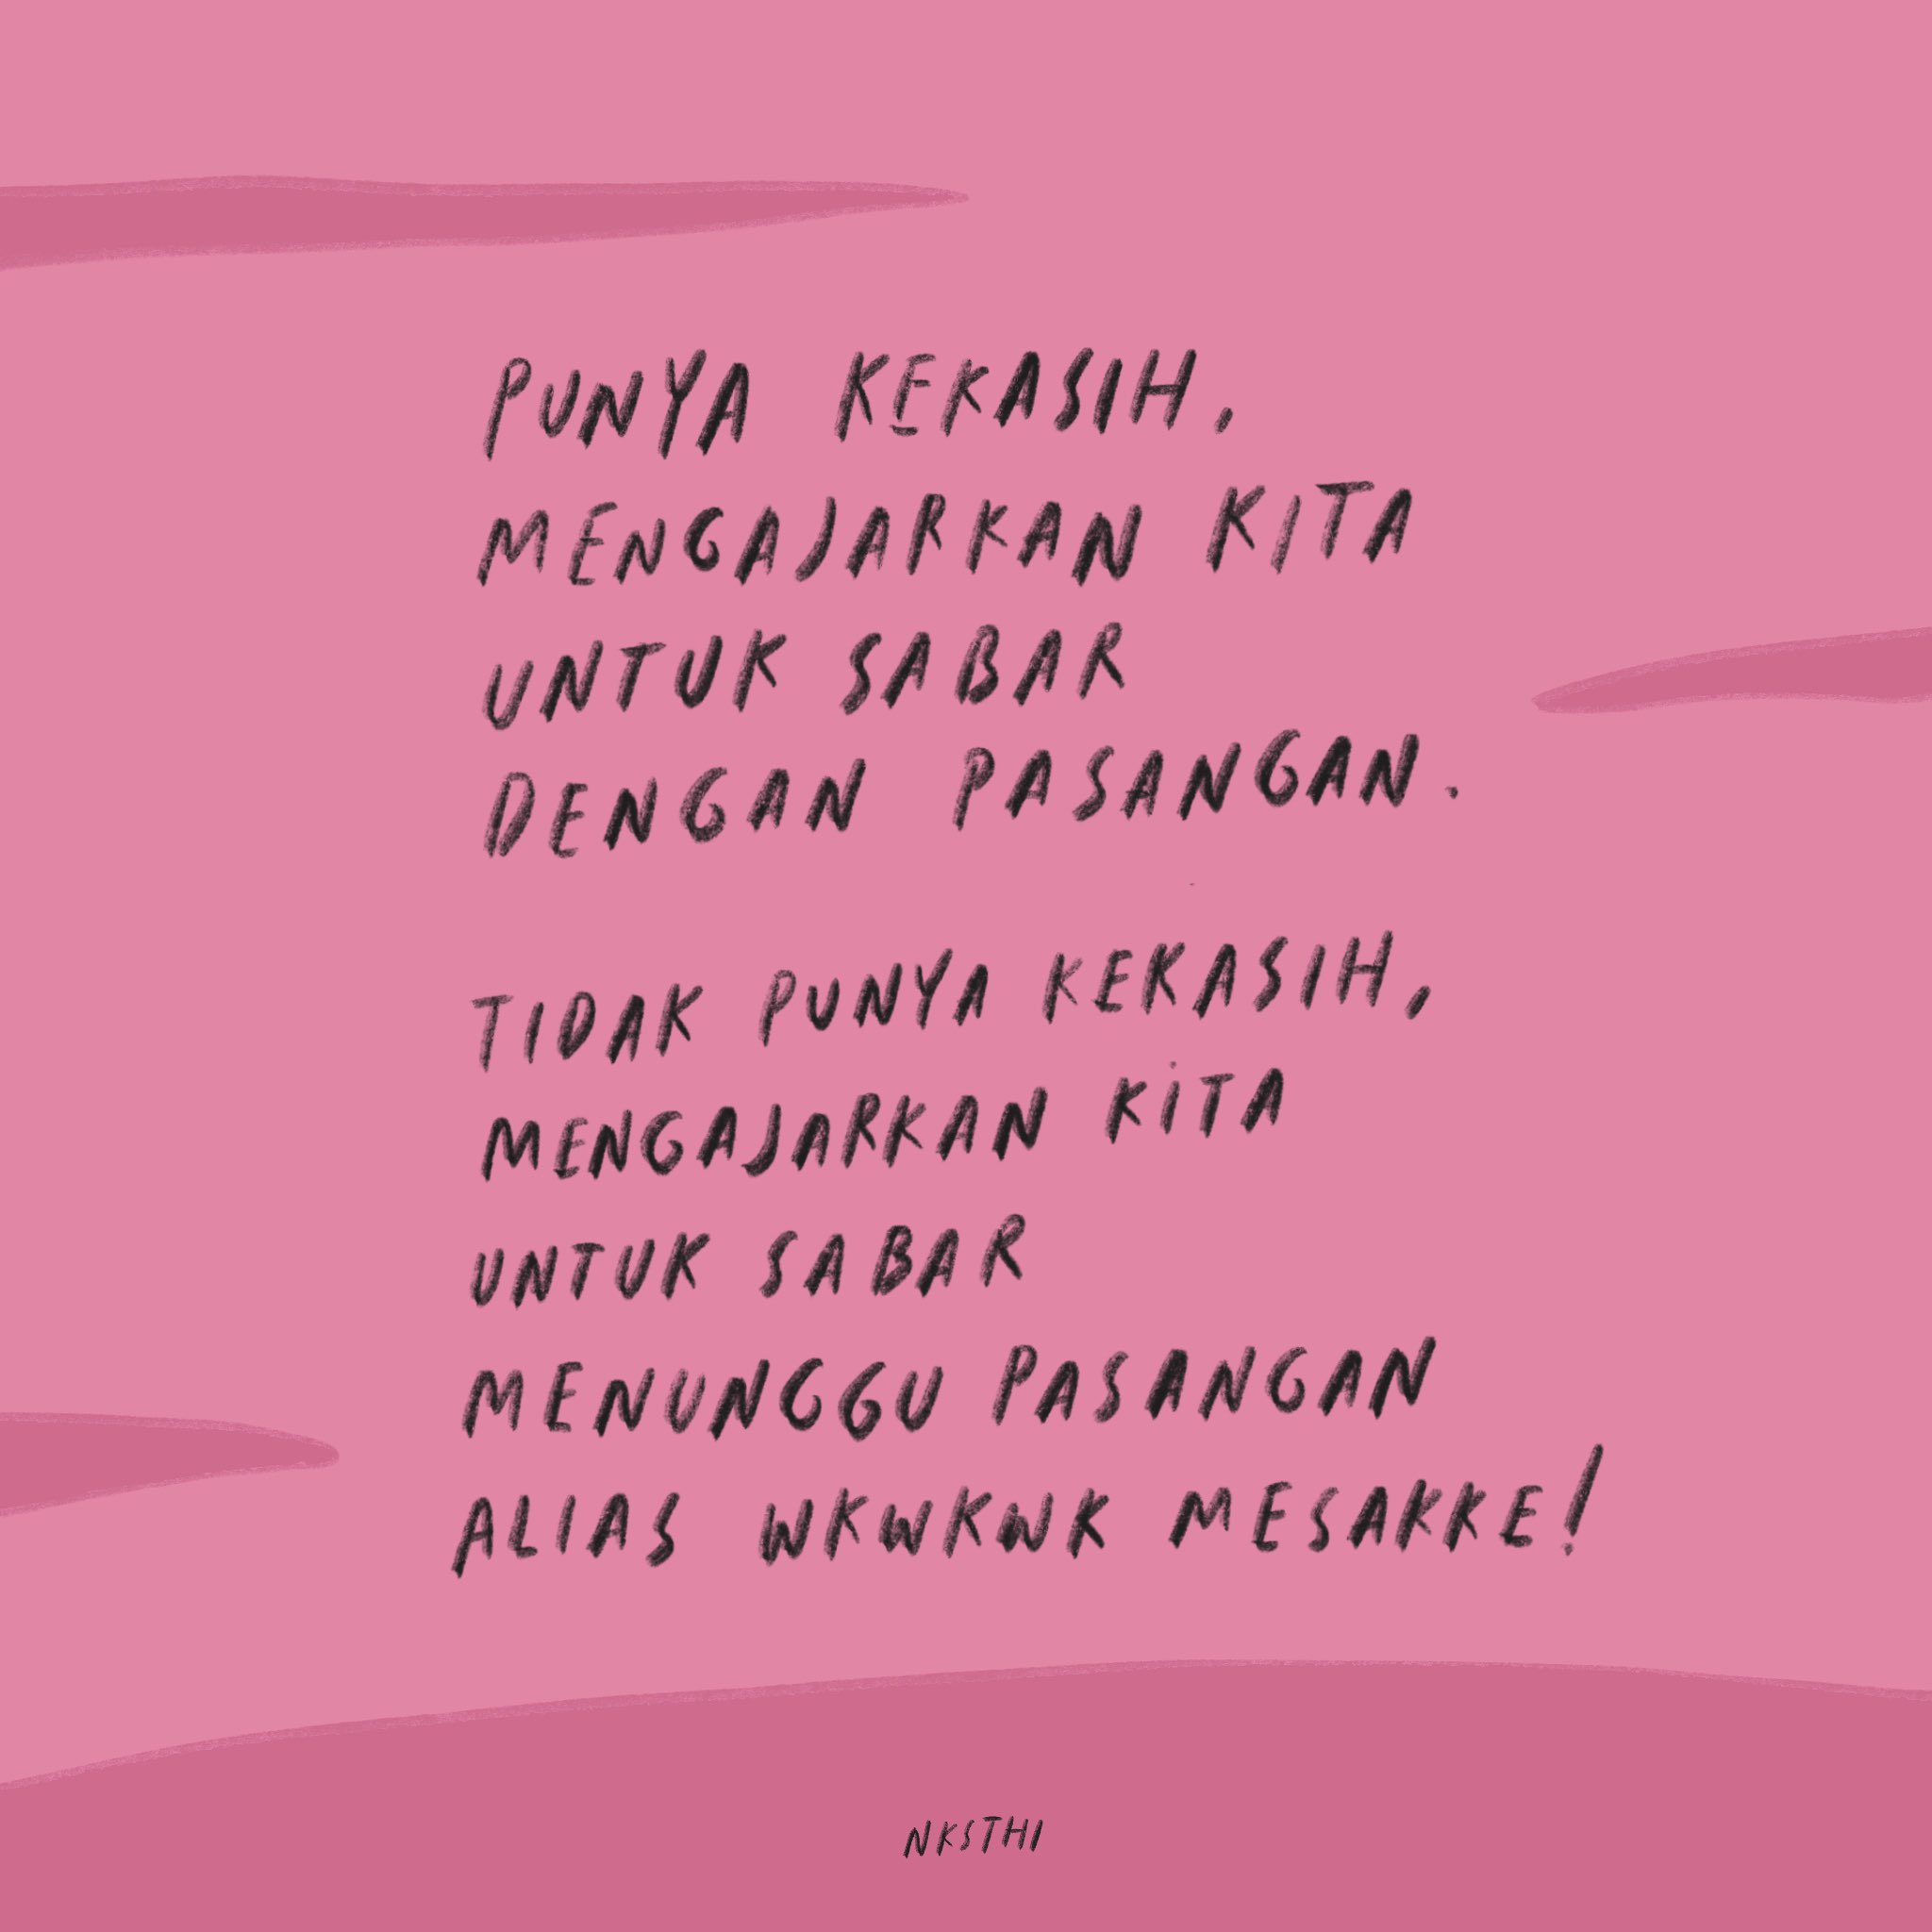 PUNYA KEKASIH,
MENGAJARKAN KITA
UNTUK SABAR
DENGAN PASANGAN.
TIDAK PUNYA KEKASIH,
MENGAJARKAN KITA
UNTUK SABAR
MENUNGGU PASANGAN
ALIAS WKWKWK MESAKKE!
NKSTHI